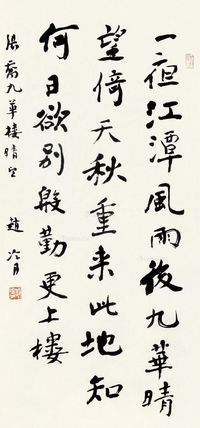 一夜江潭風雨後九華晴
望倚天秋重来此地知
何日欲别殷勤更上樓
張喬九華樓晴望
趙冷月